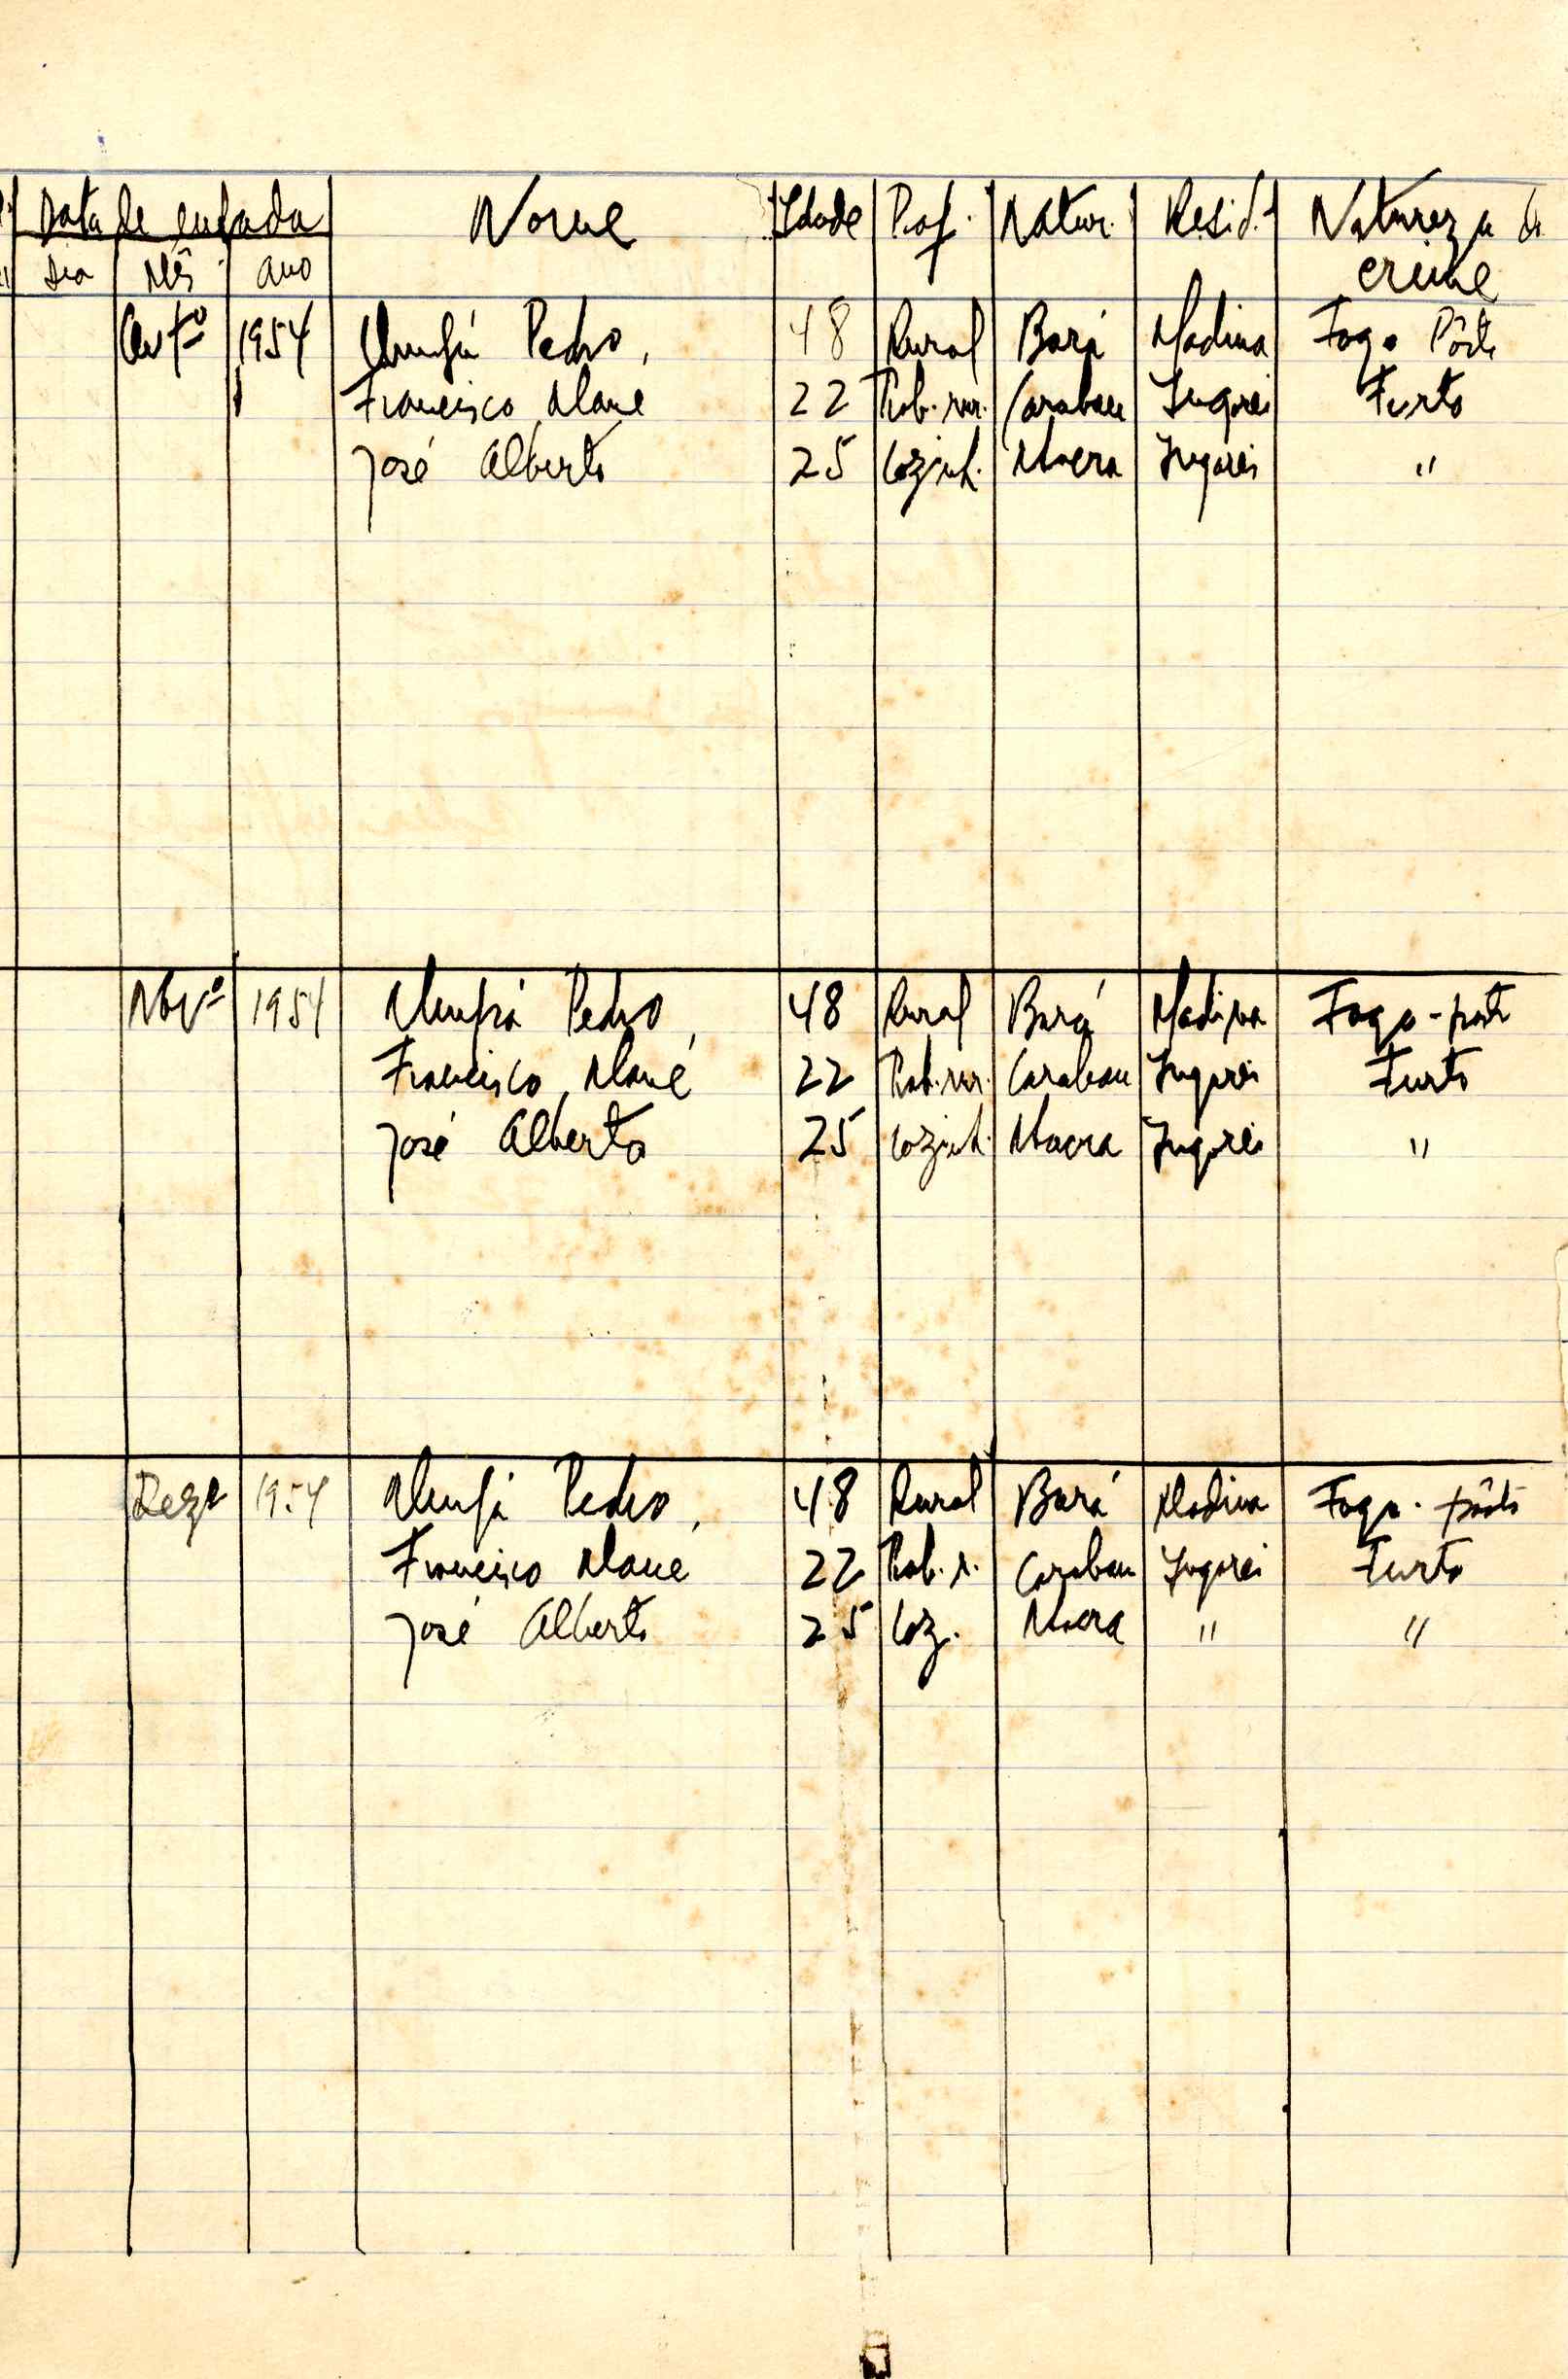 Data de entrada Nome Idade Prof. Natur. Resid. Natureza do
Dia Mês Ano crime
Outº 1954 Pedro, 48 Rural Bará Madina Fogo Pôsto
Francisco Mané 22 Trab. rur. Carabau Ingorei Furto
José Alberto 25 Cozinh. Ingorei "
Novº 1954 Pedro, 48 Rural Bará Madina Fogo-pôsto
Francisco Mané 22 Trab. rur. Carabau Ingorei Furto
José Alberto 25 Cozinh. Ingorei "
Dezº 1954 Pedro, 48 Rural Bará Madina Fogo-pôsto
Francisco Mané 22 Trab. r. Carabau Ingorei Furto
José Alberto 25 Coz. " "